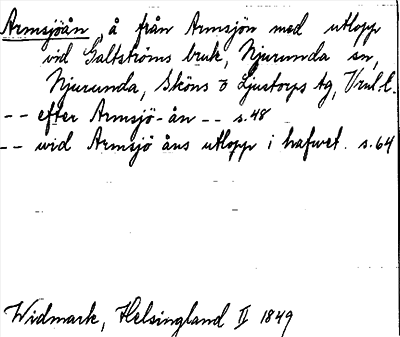 Armsjöån, å från Armsjön med utlopp
vid Galtströms bruk, Njurunda sn,
Njurunda, Sköns o Ljustorps tg, Vnl.l.
-- efter Armsjö-ån -- s.48
-- wid Armsjö åns utlopp i hafvet. s.64
Widmark, Helsingland II 1849